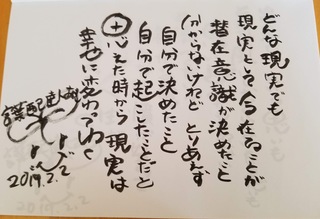 どんな現実でも
現実として今在ることが
替在意識が決めたこと
(分からないけれど とりあえず
自分で決めたこと
自分で起こしたことだと
思えた時から 現実は
幸せに変わってゆく
2019.2.2